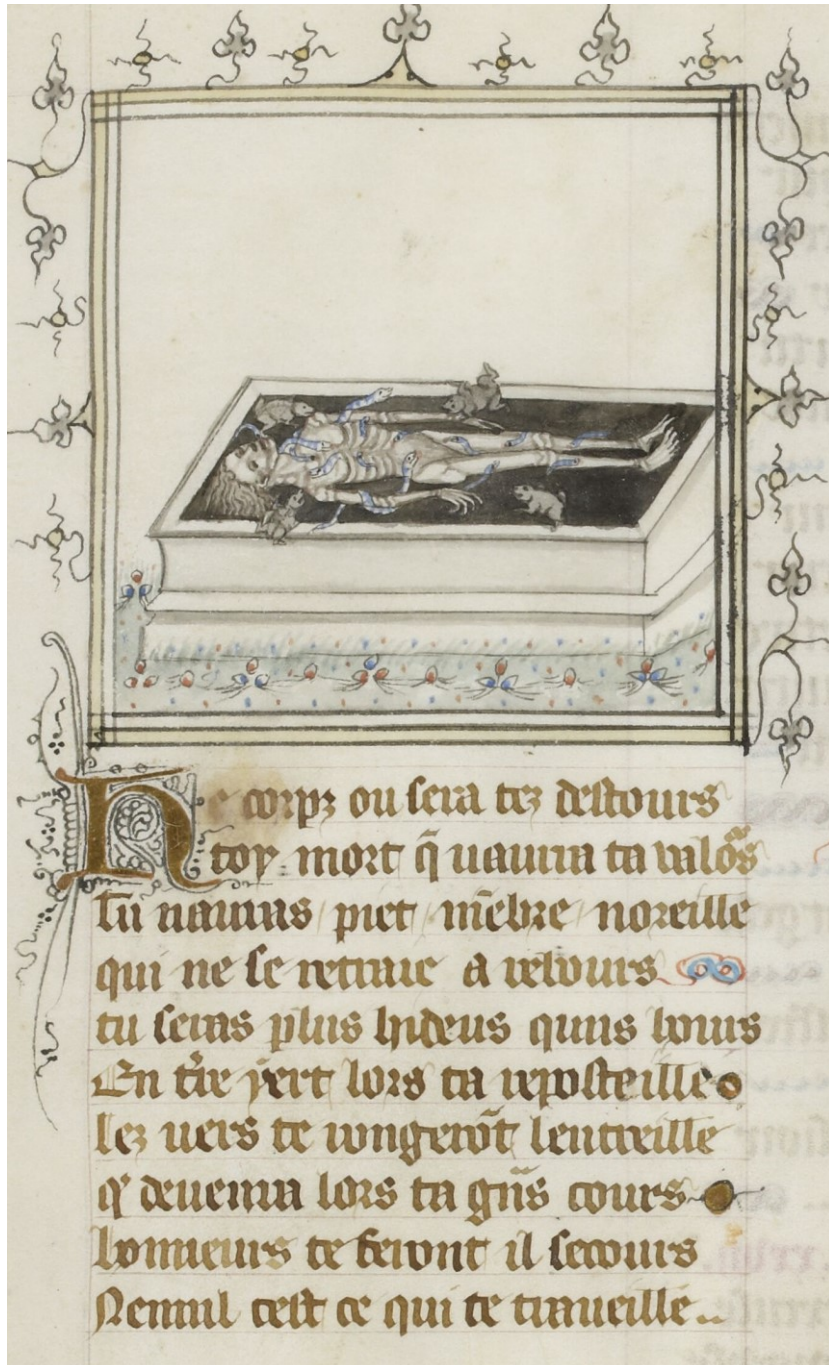 He corpz ou sera tez destours
toy mort q̃ uaura ta valo᷑s
Tu nauras piet mẽbre noreille
qui ne se retraie a rebours
tu seras plus hideus quns hours
En t̃re yert lors ta reposteille
lez uers te rongerõt lentreille
q̃ deuenra lors ta gñs cours
honneurs te feront il secours
Nennil cest ce qui te traueille